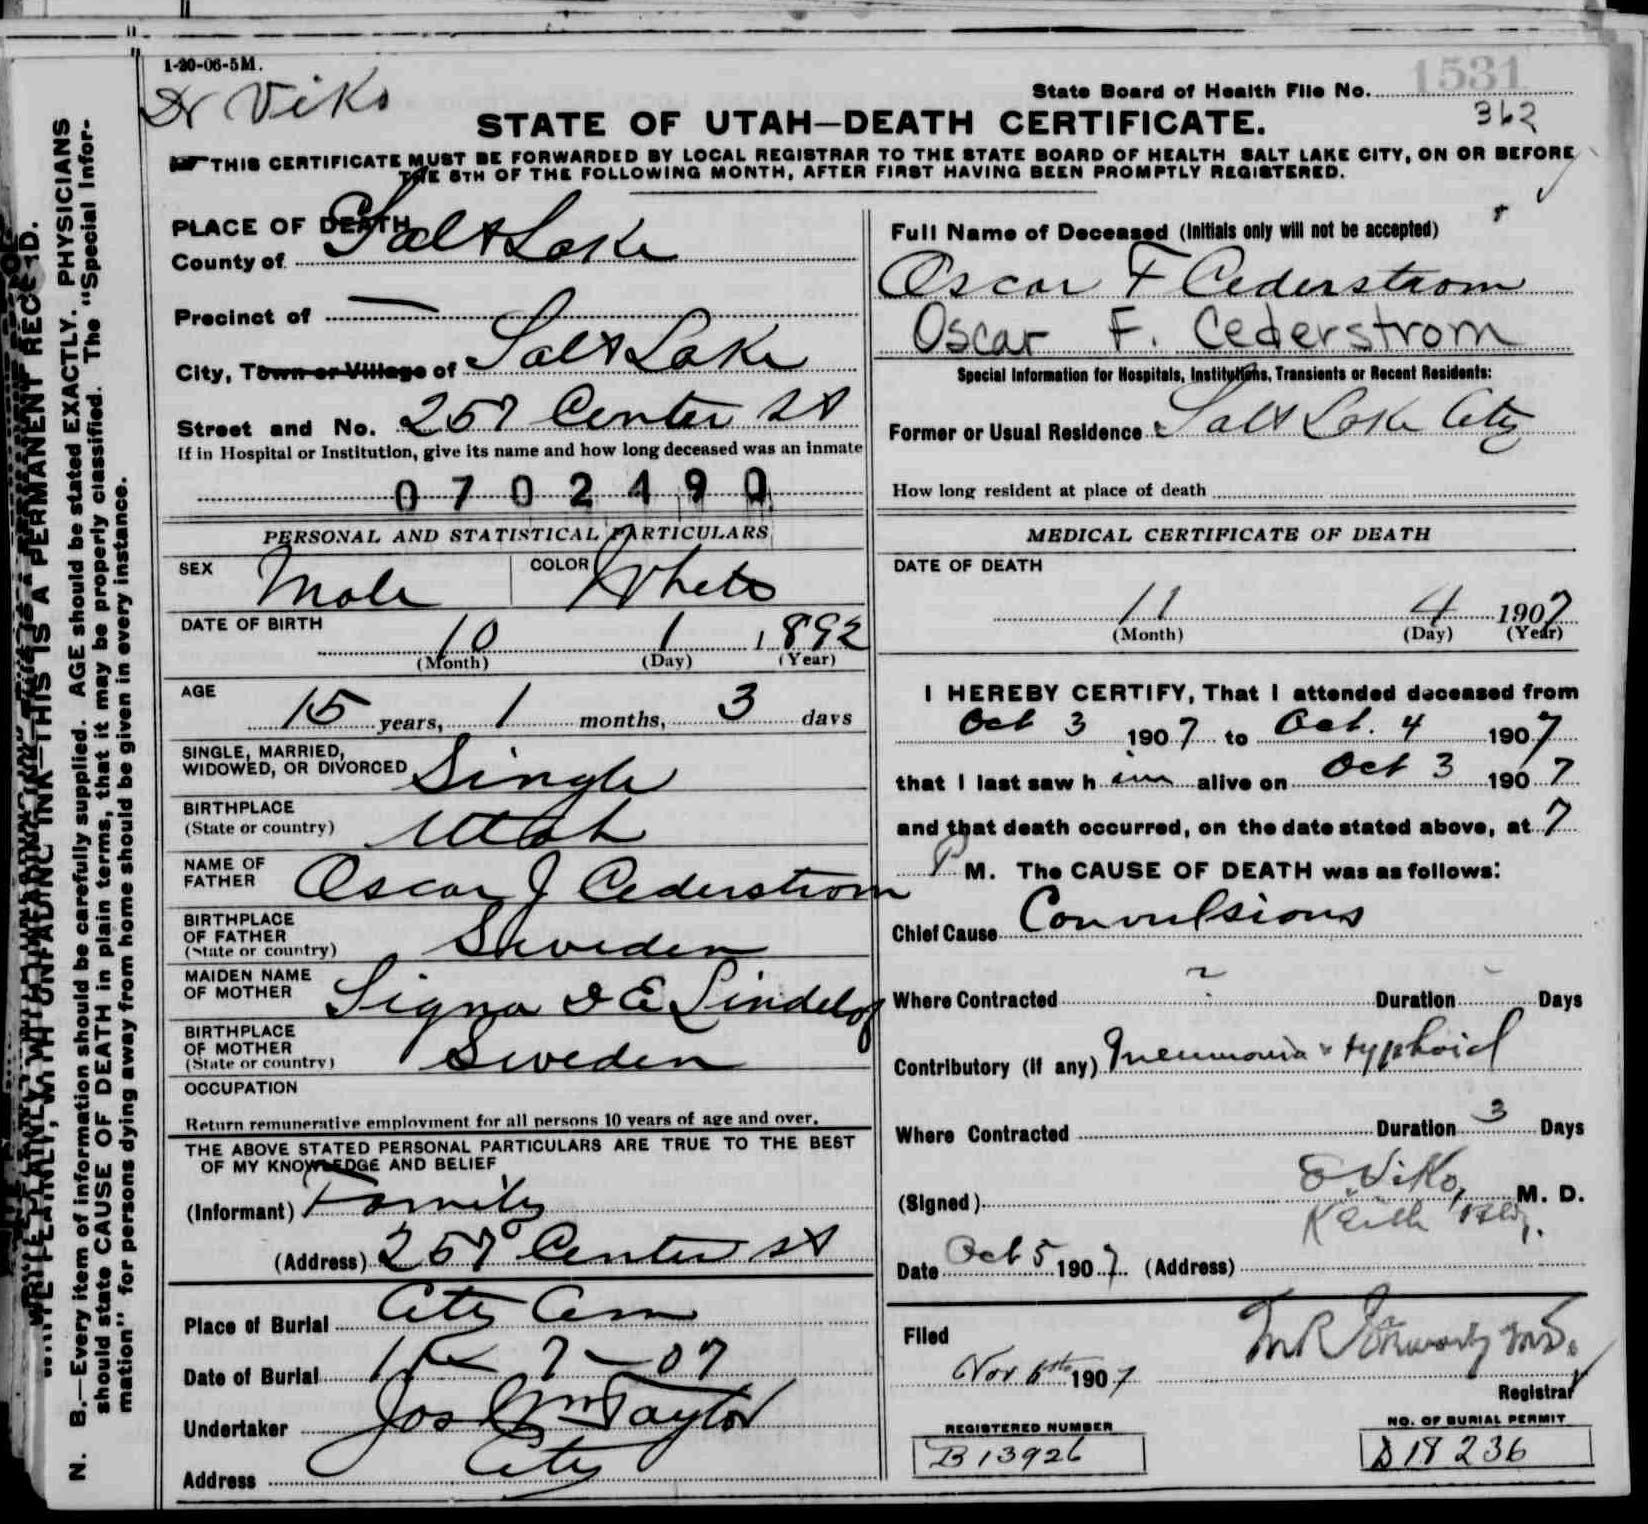 1-20-06-5M.
Dr Viko
1531
State Board of Health File No.
362
STATE OF UTAH—DEATH CERTIFICATE.
THIS CERTIFICATE MUST BE FORWARDED BY LOCAL REGISTRAR TO THE STATE BOARD OF HEALTH SALT LAKE CITY, ON OR BEFORE
THE 5TH OF THE FOLLOWING MONTH, AFTER FIRST HAVING BEEN PROMPTLY REGISTERED.
PLACE OF DEATH
County of Salt Lake
Precinct of —
City, Town or Village of Salt Lake
Street and No. 257 Center St
If in Hospital or Institution, give its name and how long deceased was an inmate
0702490
PERSONAL AND STATISTICAL PARTICULARS
SEX Male COLOR White
DATE OF BIRTH
10 1 1892
(Month) (Day) (Year)
AGE
15 years, 1 months, 3 days
SINGLE, MARRIED,
WIDOWED, OR DIVORCED Single
BIRTHPLACE
(State or country) Utah
NAME OF
FATHER Oscar J Cederstrom
BIRTHPLACE
OF FATHER
(State or country) Sweden
MAIDEN NAME
OF MOTHER Signa D E Lindelof
BIRTHPLACE
OF MOTHER
(State or country) Sweden
OCCUPATION
Return remunerative employment for all persons 10 years of age and over.
THE ABOVE STATED PERSONAL PARTICULARS ARE TRUE TO THE BEST
OF MY KNOWLEDGE AND BELIEF
(Informant) Family
(Address) 257 Center St
Place of Burial City Cem
Date of Burial 7 — 07
Undertaker Jos Wm Taylor
Address City
Full Name of Deceased (Initials only will not be accepted)
Oscar F Cederstrom
Oscar F. Cederstrom
Special Information for Hospitals, Institutions, Transients or Recent Residents:
Former or Usual Residence Salt Lake City
How long resident at place of death
MEDICAL CERTIFICATE OF DEATH
DATE OF DEATH
11 4 1907
(Month) (Day) (Year)
I HEREBY CERTIFY, That I attended deceased from
Oct 3 1907 to Oct. 4 1907
that I last saw him alive on Oct 3 1907
and that death occurred, on the date stated above, at 7
P M. The CAUSE OF DEATH was as follows:
Chief Cause Convulsions
Where Contracted ? Duration - Days
Contributory (if any) Pneumonia & typhoid
Where Contracted Duration 3 Days
(Signed) E Viko, M. D.
Keith Bldg.
Date Oct 5 1907 (Address)
Filed
Nov 1907
Registrar
REGISTERED NUMBER
B13926
NO. OF BURIAL PERMIT
D18236
N. B.—Every item of information should be carefully supplied. AGE should be stated EXACTLY. PHYSICIANS
should state CAUSE OF DEATH in plain terms, that it may be properly classified. The "Special Infor-
mation" for persons dying away from home should be given in every instance.
WRITE PLAINLY, WITH UNFADING INK—THIS IS A PERMANENT RECORD.